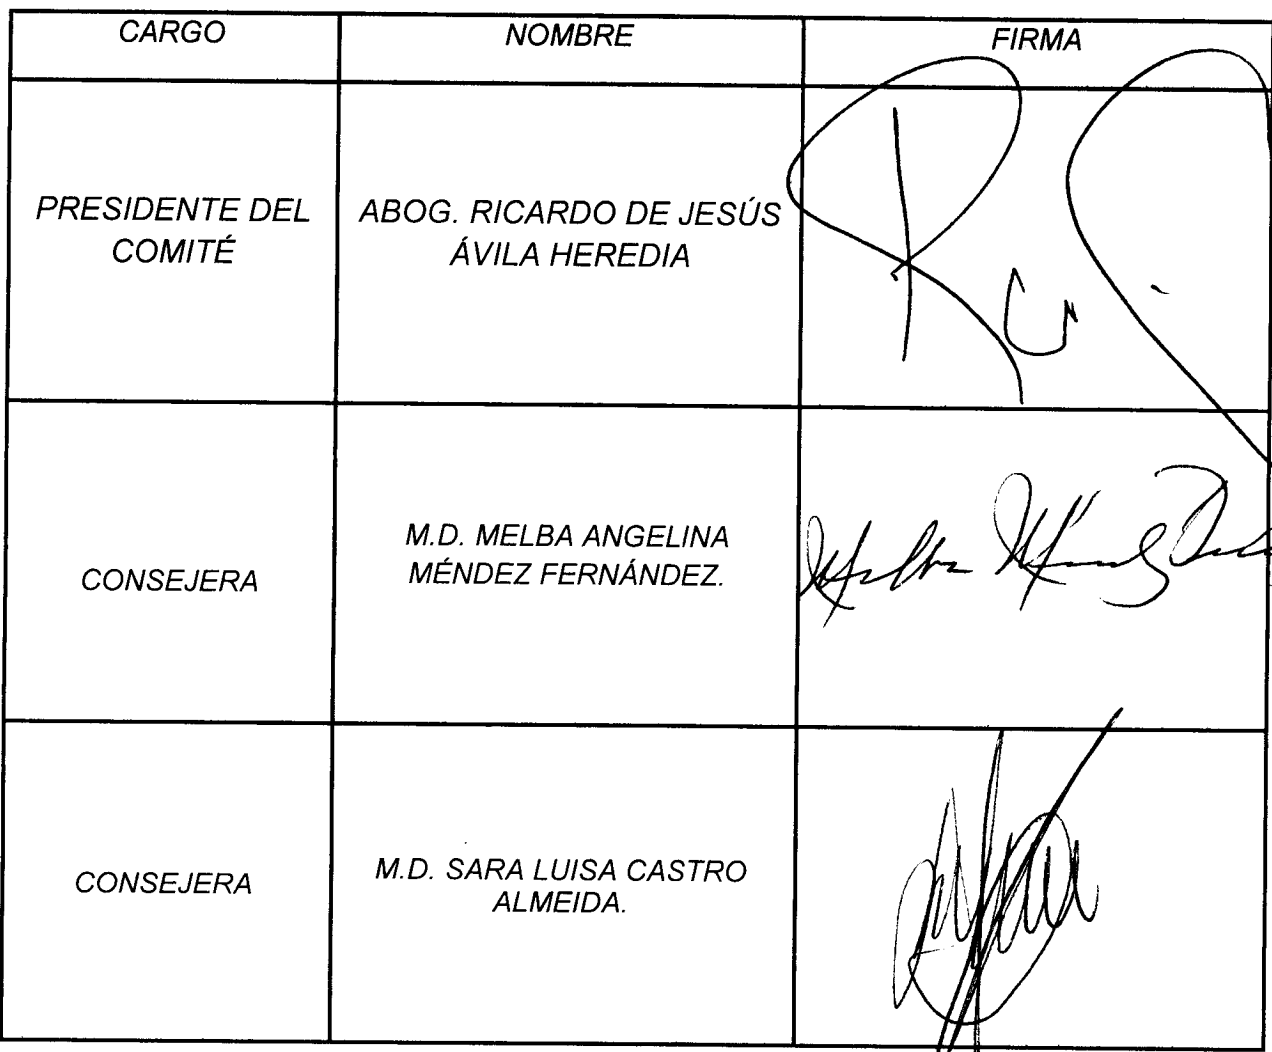 CARGO NOMBRE FIRMA
PRESIDENTE DEL
COMITÉ
ABOG. RICARDO DE JESÚS
ÁVILA HEREDIA
CONSEJERA
M.D. MELBA ANGELINA
MÉNDEZ FERNÁNDEZ.
Melba Méndez
CONSEJERA
M.D. SARA LUISA CASTRO
ALMEIDA.